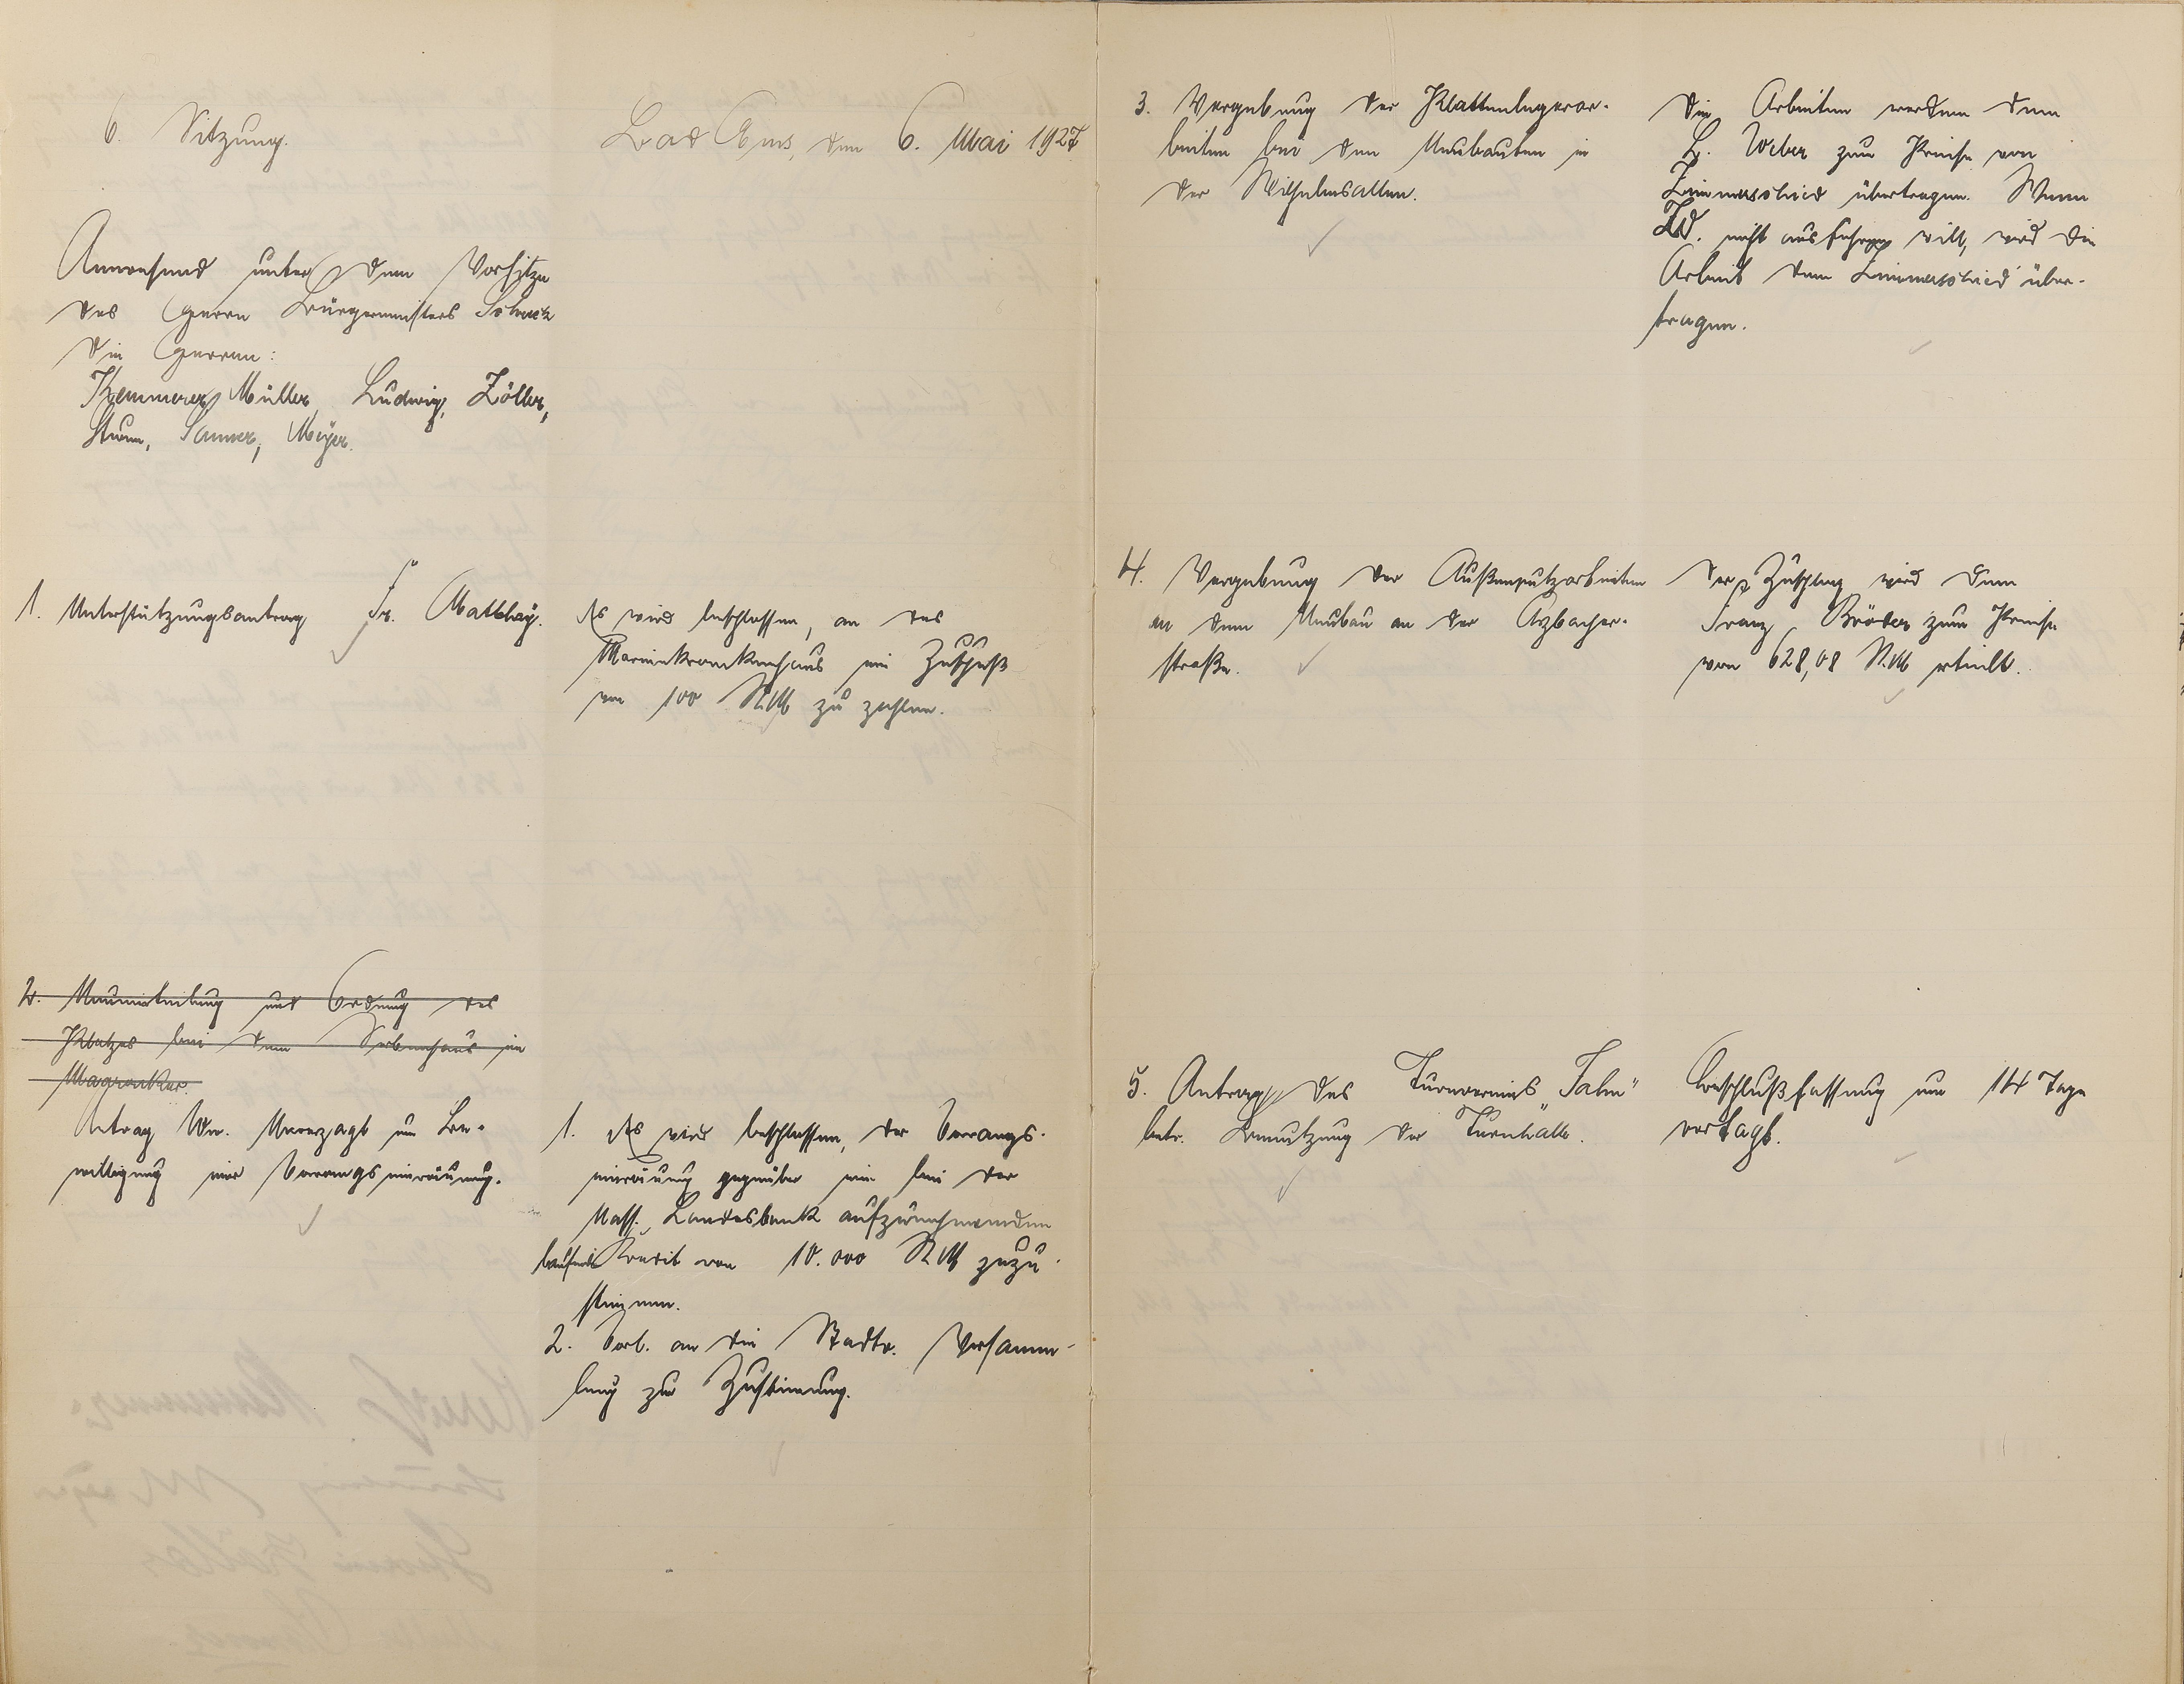 6. Sitzung.
Bad Ems, den 6. Mai 1927
Anwesend unter dem Vorsitze
des Herrn Bürgermeisters Schuck
die Herren:
Kemmerer, Müller, Ludwig, Zöller,
Sturm, Sauner, Meyer.
1. Unterstützungsantrag Fr. Matthay.
Es wird beschlossen, an das
Marienkrankenhaus ein Zuschuß
von 100 RM zu zahlen.
2. Neueinteilung und Ordnung des
Platzes bei dem Siebenhaus im
Antrag Ww. Unverzagt um Be-
willigung einer Vorrangseinräumung.
1. Es wird beschlossen, der Vorrangs-
einräumung gegenüber ein bei der
Nass. Landesbank aufzunehmenden
Kredit von 10.000 RM zuzu-
stimmen.
2. Vorl. an die Stadtv. Versamm-
lung zur Zustimmung.
3. Vergebung der Plattenlegerar-
beiten bei den Neubauten in
der Wilhelmsallee.
Die Arbeiten werden dem
L. Weber zum Preise von
Zimmerschied übertragen. Wenn
nicht ausführen will, wird die
Arbeit dem Zimmerschied über-
tragen.
4. Vergebung der Außenputzarbeiten
an dem Neubau an der Arzbacher-
straße.
Der Zuschlag wird dem
Franz Bröder zum Preise
von 628,08 R.M erteilt.
5. Antrag des Turnvereins „Jahn"
betr. Benutzung der Turnhalle.
Beschlußfassung um 14 Tage
vertagt.